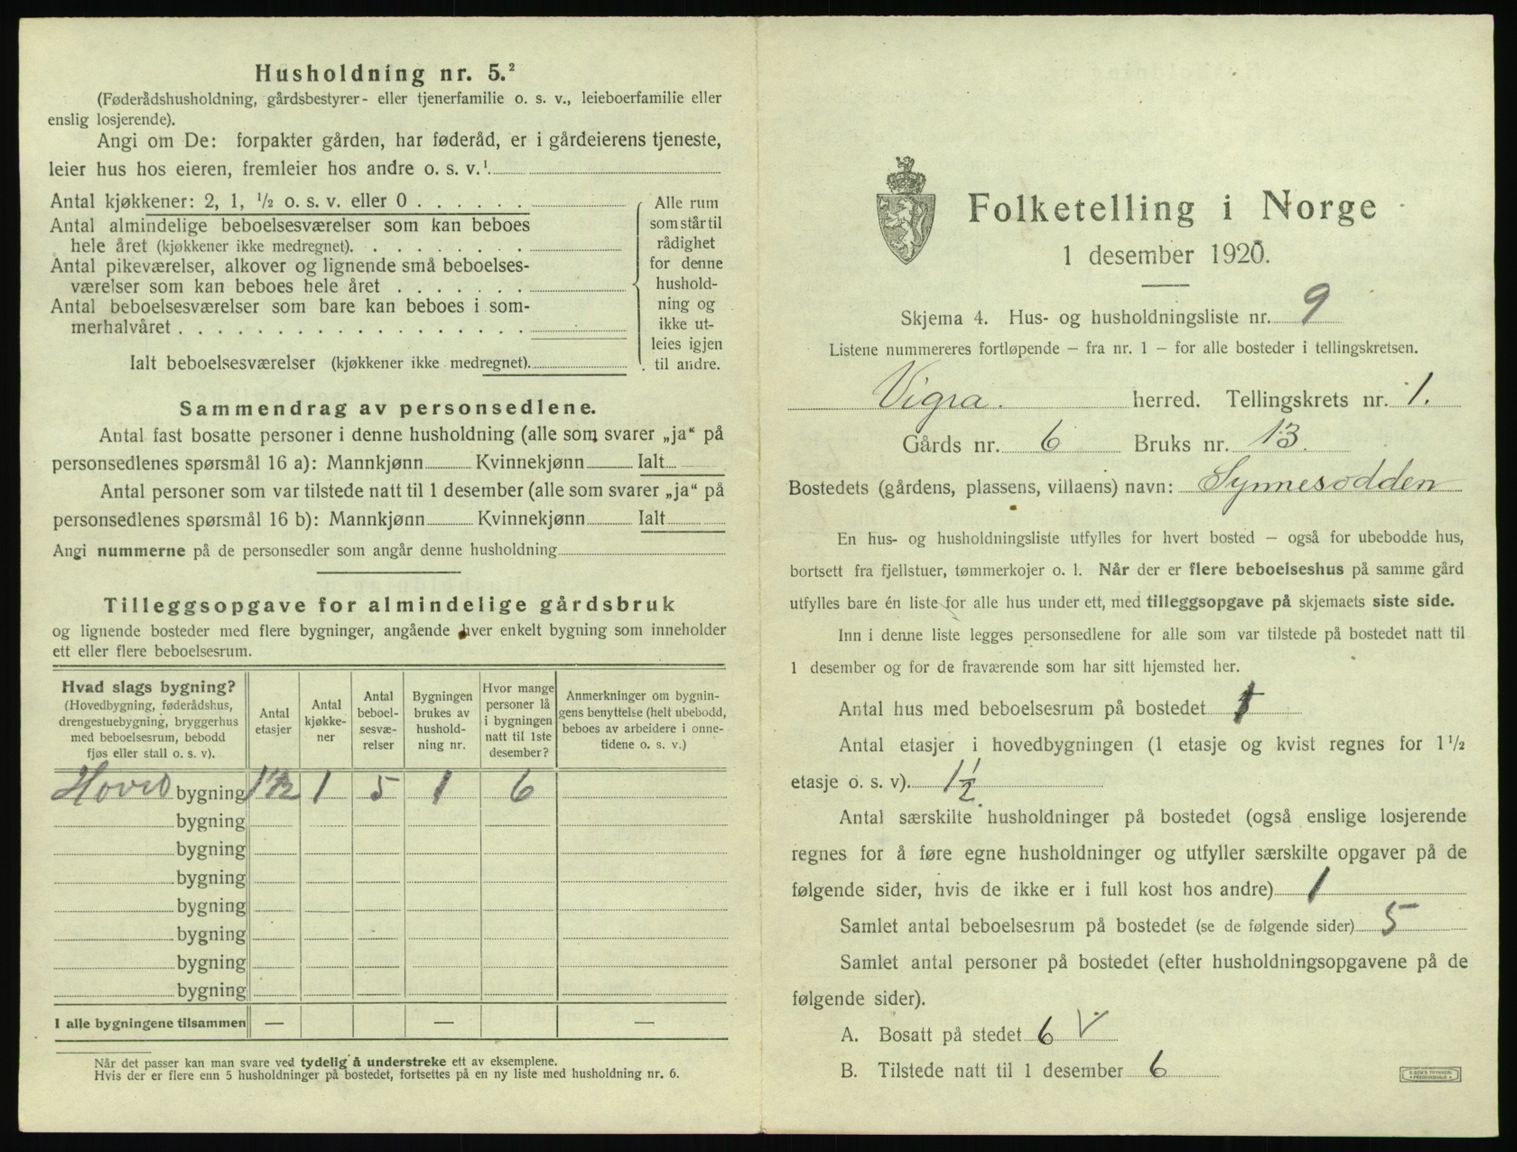 Husholdning nr. 5.²
(Føderådshusholdning, gårdsbestyrer- eller tjenerfamilie o. s. v., leieboerfamilie eller
enslig losjerende).
Angi om De: forpakter gården, har føderåd, er i gårdeierens tjeneste,
leier hus hos eieren, fremleier hos andre o. s. v.¹
Antal kjøkkener: 2, 1, ½ o. s. v. eller 0 . . . . . .
Antal almindelige beboelsesværelser som kan beboes
hele året (kjøkkener ikke medregnet). . . . . . . . .
Antal pikeværelser, alkover og lignende små beboelses-
værelser som kan beboes hele året . . . . . . .
Antal beboelsesværelser som bare kan beboes i som-
merhalvåret . . . . . . . . . . . . . . . . . .
Ialt beboelsesværelser (kjøkkener ikke medregnet).
Alle rum
som står til
rådighet
for denne
hushold-
ning og
ikke ut-
leies igjen
til andre.
Sammendrag av personsedlene.
Antal fast bosatte personer i denne husholdning (alle som svarer „ja“ på
personsedlenes spørsmål 16 a): Mannkjønn Kvinnekjønn Ialt
Antal personer som var tilstede natt til 1 desember (alle som svarer „ja“ på
personsedlenes spørsmål 16 b): Mannkjønn Kvinnekjønn Ialt
Angi nummerne på de personsedler som angår denne husholdning
Tilleggsopgave for almindelige gårdsbruk
og lignende bosteder med flere bygninger, angående hver enkelt bygning som inneholder
ett eller flere beboelsesrum.
Hvad slags bygning?
(Hovedbygning, føderådshus,
drengestuebygning, bryggerhus
med beboelsesrum, bebodd
fjøs eller stall o. s. v).
Antal
etasjer
Antal
kjøkke-
ner
Antal
beboel-
sesvæ-
relser
Bygningen
brukes av
hushold-
ning nr.
Hvor mange
personer lå
i bygningen
natt til 1ste
desember?
Anmerkninger om bygnin-
gens benyttelse (helt ubebodd,
beboes av arbeidere i onne-
tidene o. s. v.)
Hoved bygning 1½ 1 5 1 6
bygning
bygning
bygning
bygning
bygning
bygning
bygning
I alle bygningene tilsammen — — —
Når det passer kan man svare ved tydelig å understreke ett av eksemplene.
Hvis der er flere enn 5 husholdninger på bostedet, fortsettes på en ny liste med husholdning nr. 6.
Folketelling i Norge
1 desember 1920.
Skjema 4. Hus- og husholdningsliste nr. 9
Listene nummereres fortløpende – fra nr. 1 – for alle bosteder i tellingskretsen.
Vigra. herred. Tellingskrets nr. 1.
Gårds nr. 6 Bruks nr. 13.
Bostedets (gårdens, plassens, villaens) navn: Synnesodden
En hus- og husholdningsliste utfylles for hvert bosted – også for ubebodde hus,
bortsett fra fjellstuer, tømmerkojer o. l. Når der er flere beboelseshus på samme gård
utfylles bare én liste for alle hus under ett, med tilleggsopgave på skjemaets siste side.
Inn i denne liste legges personsedlene for alle som var tilstede på bostedet natt til
1 desember og for de fraværende som har sitt hjemsted her.
Antal hus med beboelsesrum på bostedet 1
Antal etasjer i hovedbygningen (1 etasje og kvist regnes for 1½
etasje o. s. v). 1½.
Antal særskilte husholdninger på bostedet (også enslige losjerende
regnes for å føre egne husholdninger og utfyller særskilte opgaver på de
følgende sider, hvis de ikke er i full kost hos andre) 1
Samlet antal beboelsesrum på bostedet (se de følgende sider) 5
Samlet antal personer på bostedet (efter husholdningsopgavene på de
følgende sider).
A. Bosatt på stedet 6 V
B. Tilstede natt til 1 desember 6